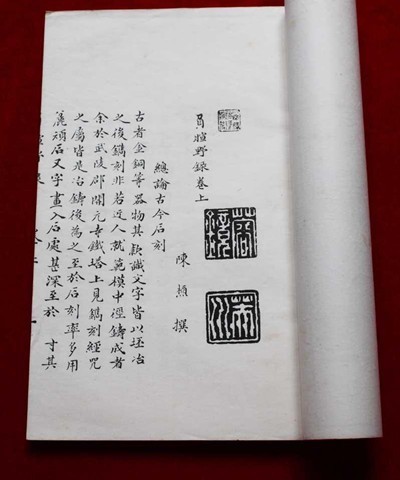 負暄野錄卷上
陳槱撰
總論古今石刻
古者金銅等器物其款識文字皆以坯冶
之後鐫刻非若近人就範模中徑鑄成者
余於武陵郡開元寺鐵塔上見鐫刻經咒
之屬皆是冶鑄後為之至於石刻率多用
麤頑石又字畫入石處甚深至於 寸其